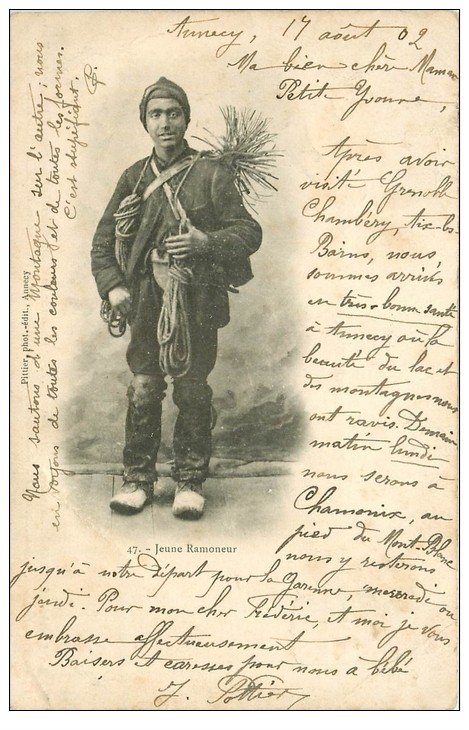 Annecy, 17 août 02
Ma bien chèr Maman
Petite Yvonne,
Après avoir
visité Grenoble
Chambéry, Aix-les-
Bains, nous
sommes arrivés
en très bonne santé
à Annecy où la
beauté du lac et
des montagnes nous
ont ravis. Demain
matin lundi
nous serons à
Chamonix, au
pied du Mont-Blanc
nous y resterons
jusqu'à notre départ pour la Garenne, mercredi ou
jeudi. Pour mon cher Frédéric, et moi je vous
embrasse affectueusement
Baisers et caresses pour nous à bébé
J. Pottier
Nous sautons d'une montagne sur l'autre; nous
en voyons de toutes les couleurs et de toutes les formes.
C'est magnifique.
Pittier, phot.-édit., Annecy
47. - Jeune Ramoneur